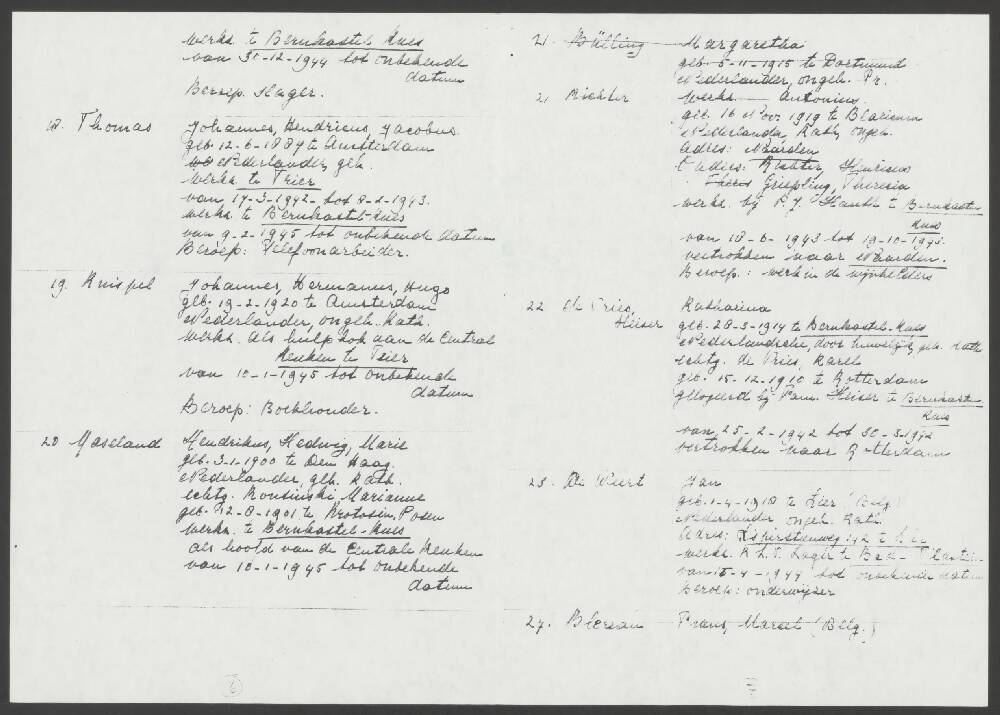 werkz. te Bernkastel-Kues
van 30-12-1944 tot onbekende
datum
Beroep: slager.
18. Thomas Johannes, Hendricus, Jacobus.
geb. 12-6-1889 te Amsterdam
Nederlander, geh.
werkz. te Trier
van 17-3-1942 tot 8-2-1943.
werkz. te Bernkastel-Kues
van 9-2-1945 tot onbekende datum
Beroep: Telefoonarbeider.
19. Knispel Johannes, Hermannus, Hugo
geb. 19-2-1920 te Amsterdam
Nederlander, ongeh. Kath.
werkz. als hulpkok aan de Central
Keuken te Trier
van 10-1-1945 tot onbekende
datum
Beroep: Boekhouder.
20 Maseland Hendrikus, Hedwig, Marie
geb. 3-1-1900 te Den Haag.
Nederlander, geh. Kath.
echtg. Rousinski Marianne
geb. 12-8-1901 te Krotosin, Posen
werkz. te Bernkastel-Kues
als hoofd van de Centrale Keuken
van 10-1-1945 tot onbekende
datum
6
21. Bülling Margaretha
geb. 5-11-1915 te Dortmund
Nederlander, ongeh. Pr.
21 Richter werkz. Antonius
geb. 16 Nov. 1919 te Blaricum
Nederlander, Kath. ongeh.
adres: Naarden
t adres: Richter, Henricus
Griepling, Theresia
werkz. bij P.J. Hauth te Bernkastel
Kues
van 18-6-1943 tot 19-10-1943.
vertrokken naar Naarden.
Beroep.: werk in de wijnkelders
22 de Vries, Katharina
Heiser geb. 28-3-1914 te Bernkastel-Kues
Nederlandsche, door huwelijk, geh. Kath
echtg. de Vries, Karel
geb. 15-12-1910 te Rotterdam
gelogeerd bij Fam. Heiser te Bernkastel
Kues
van 25-2-1942 tot 30-3-1942
vertrokken naar Rotterdam
23. De Weert Jan
geb. 1-4-1918 te Lier (Belg.)
Nederlander ongeh. Kath.
Adres: te Lier
werkz. Lager te Bad-
van 15-4-1944 tot onbekende datum
Beroep: onderwijzer
24. Frans, Marcel (Belg.)
7